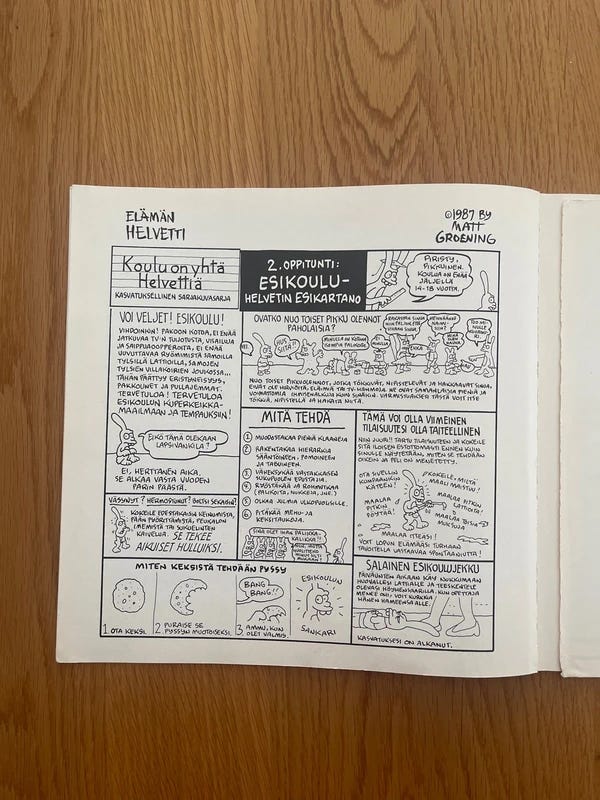 ELÄMÄN
HELVETTI
©1987 BY
MATT
GROENING
Koulu on yhtä
Helvettiä
KASVATUKSELLINEN SARJAKUVASARJA
2. OPPITUNTI:
ESIKOULU-
HELVETIN ESIKARTANO
PIRISTY,
PIKKUINEN.
KOULUA ON ENÄÄ
JÄLJELLÄ
14-18 VUOTTA.
VOI VELJET! ESIKOULU!
VIHDOINKIN! PAKOON KOTOA, EI ENÄÄ
JATKUVAA TV:N TUIJOTUSTA, VISAILUJA
JA SAIPPUAOOPPEROITA, EI ENÄÄ
UUVUTTAVAA RYÖMIMISTÄ SAMOILLA
TYLSILLÄ LATTIOILLA, SAMOJEN
TYLSIEN VILLAKOIRIEN JOUKOSSA...
TÄHÄN PÄÄTTYY ERISTYNEISYYS,
PAKKOUNET JA PULLAJEMMAT.
TERVETULOA! TERVETULOA
ESIKOULUN KUPERKEIKKA-
MAAILMAAN JA TEMPAUKSIIN!
EIKÖ TÄMÄ OLEKAAN
LAPSIVANKILA?
EI, HERTTANEN AIKA.
SE ALKAA VASTA VUODEN
PARIN PÄÄSTÄ.
OVATKO NUO TOISET PIKKU OLENNOT
PAHOLAISIA?
HEI.
HUS SIITÄ!
MINULLA ON KOTONA
ISOMPIA PALIKOITA.
RAKASTAN SINUA
NIIN PALJON, ETTÄ
VIHAAN SINUA.
NUO TOISET PIKKUOLENNOT, JOTKA TÖKKIVÄT, NIPISTELEVÄT JA HAKKAAVAT SINUA,
EIVÄT OLE HIRVIÖITÄ, ELÄIMIÄ TAI TV-HAHMOJA. NE OVAT SAMANLAISIA PIENIÄ JA
VOIMATTOMIA IHMISENALKUJA KUIN SINÄKIN. VARMISTUAKSESI TÄSTÄ VOIT ITSE
TÖKKIÄ, NIPISTELLÄ JA HAKATA NIITÄ.
MITÄ TEHDÄ
1 MUODOSTAKAA PIENIÄ KLAANEJA
2 RAKENTAKAA HIERARKIA
SÄÄNTÖINEEN, POMOINEEN
JA TABUINEEN.
3 VÄHEKSYKÄÄ VASTAKKAISEN
SUKUPUOLEN EDUSTAJIA.
4 RYÖSTÄKÄÄ JA ROHMUTKAA
(PALIKOITA, NUKKEJA, JNE.)
5 OLKAA JULMIA ULKOPUOLISILLE.
6 PITÄKÄÄ MEHU- JA
KEKSITAUKOJA.
TÄMÄ VOI OLLA VIIMEINEN
TILAISUUTESI OLLA TAITEELLINEN
NIIN JUURI! TARTU TILAISUUTEEN JA KOKEILE
SITÄ ILOISEN ESTOTTOMASTI ENNEN KUIN
SINULLE NÄYTETÄÄN, MITEN SE TEHDÄÄN
OIKEIN JA PELI ON MENETETTY.
OTA SIVELLIN
KUMPAANKIN
KÄTEEN!
KOKEILE, MILTÄ
MAALI MAISTUU!
MAALAA
PITKIN
PÖYTÄÄ!
MAALAA PITKIN
LATTIOITA!
MAALAA TOISIA
MUKSUJA
MAALAA ITTEÄSI!
VOIT LOPUN ELÄMÄÄSI TURHAAN
TAVOITELLA VASTAAVAA SPONTAANIUTTA!
VÄSYNYT? HERMOSTUNUT? OLETSI SEKAISIN?
KOKEILE EDESTAKAISIN KEINUMISTA,
PÄÄN PYÖRITTÄMISTÄ, PEUKALON
IMEMISTÄ TAI SORKELINTEN
KAIVELUA. SE TEKEE
AIKUISET HULLUIKSI.
MITEN KEKSISTÄ TEHDÄÄN PYSSY
1. OTA KEKSI.
2. PURAISE SE
PYSSYN MUOTOISEKSI.
BANG!
BANG!!
3. AMMU, KUN
OLET VALMIS.
ESIKOULUN
SANKARI
SALAINEN ESIKOULUJEKKU
PÄIVÄUNTEN AIKAAN KÄY NUKKUMAAN
HUOVALLESI LATTIALLE JA TEESKENTELE
OLEVASI HÖYHENSAARILLA. KUN OPETTAJA
MENEE OHI, VOIT KURKKIA
HÄNEN HAMEENSA ALLE.
KASVATUKSESI ON ALKANUT.